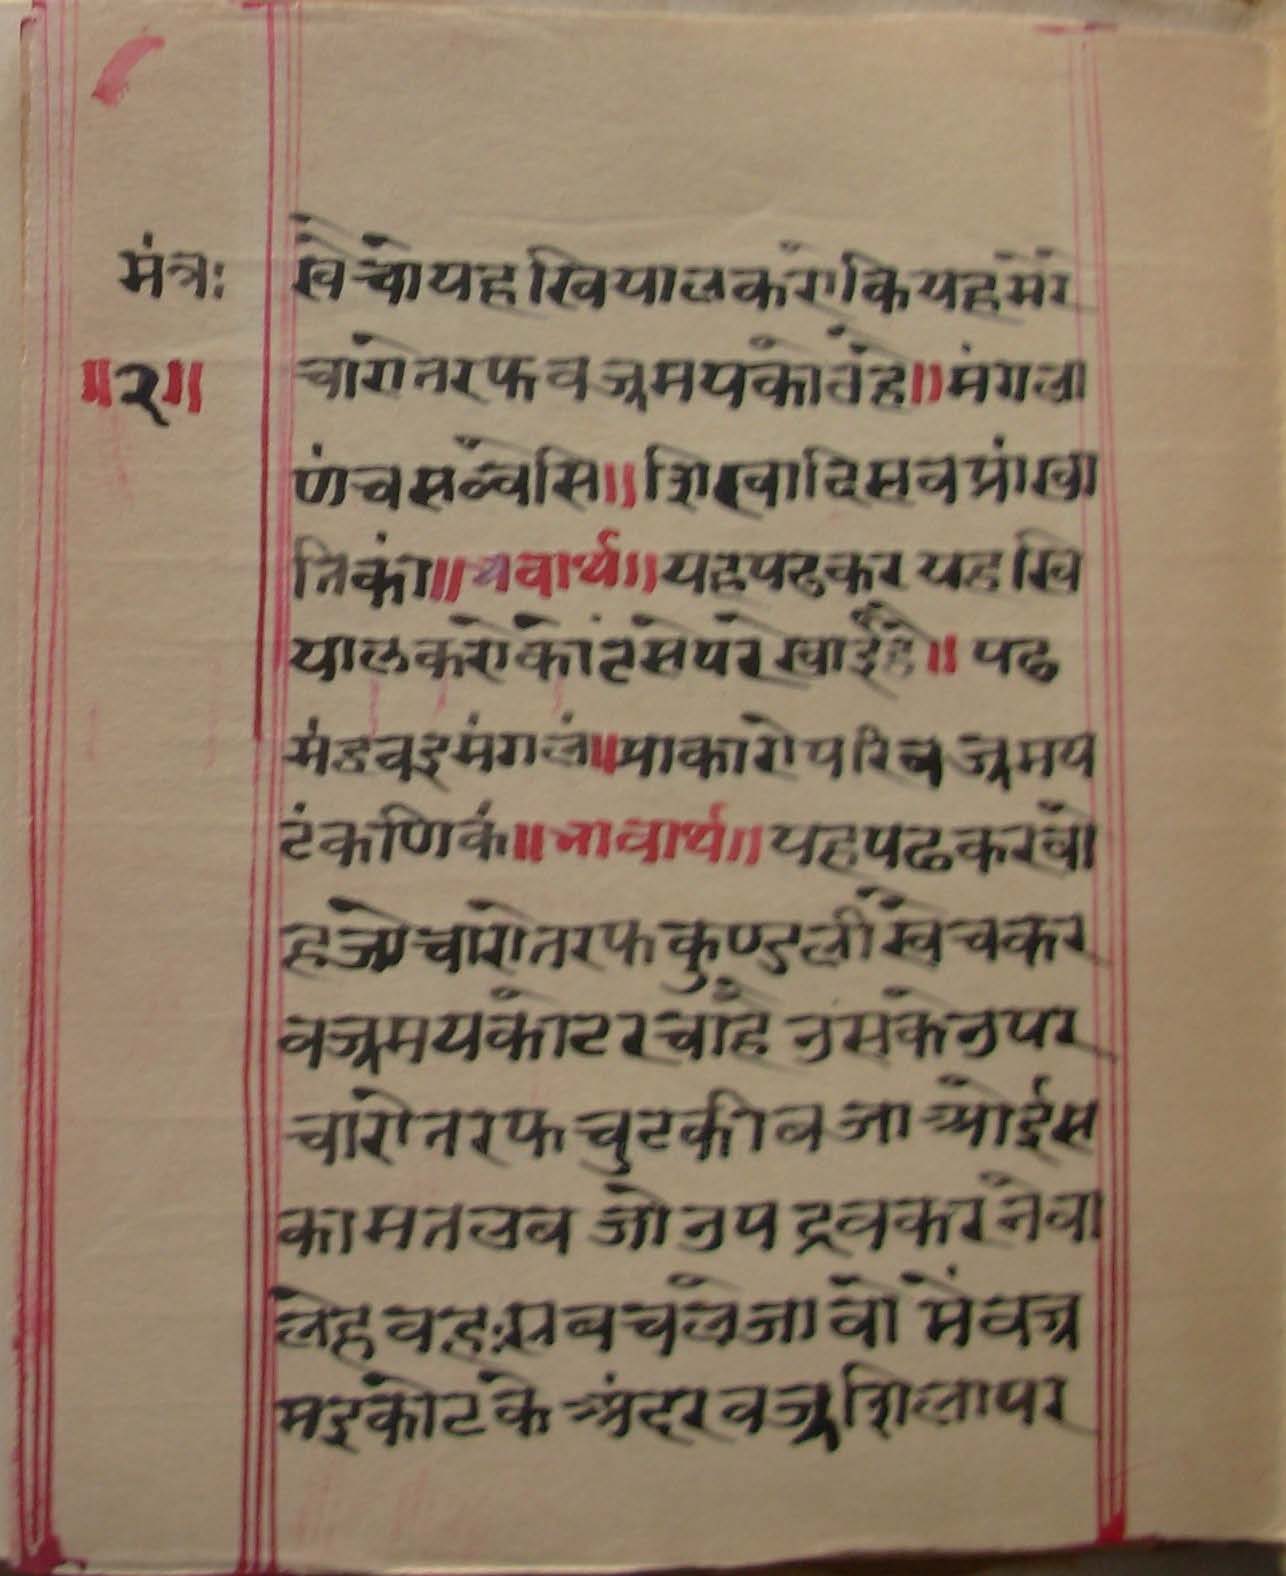 मंत्रः
॥२॥
खेचो यह खियाल करो कि यह मेरे
चारो तरफ वज्रमय कोट हे॥ मंगला
णं च सव्वेसिं॥ शिखादि सव प्रां खा
तिकां॥ भवार्थ॥ यह पढकर यह खि
याल करो कोट से परे खाई है॥ पढ
मं हवइ मंगलं॥ प्राकारोपरि वज्रमय
टंकणिकं॥ भावार्थ॥ यह पढकर वो
ह जो चारो तरफ कुण्डली खेचकर
वज्रमय कोट रचा हे उसके उपर
चारो तरफ चुटकी बजाओ ईस
का मतलब जो उपद्रव करनेवा
ले ह वह सब चले जावो में वज्र
मइ कोट के अंदर वज्रशिला पर